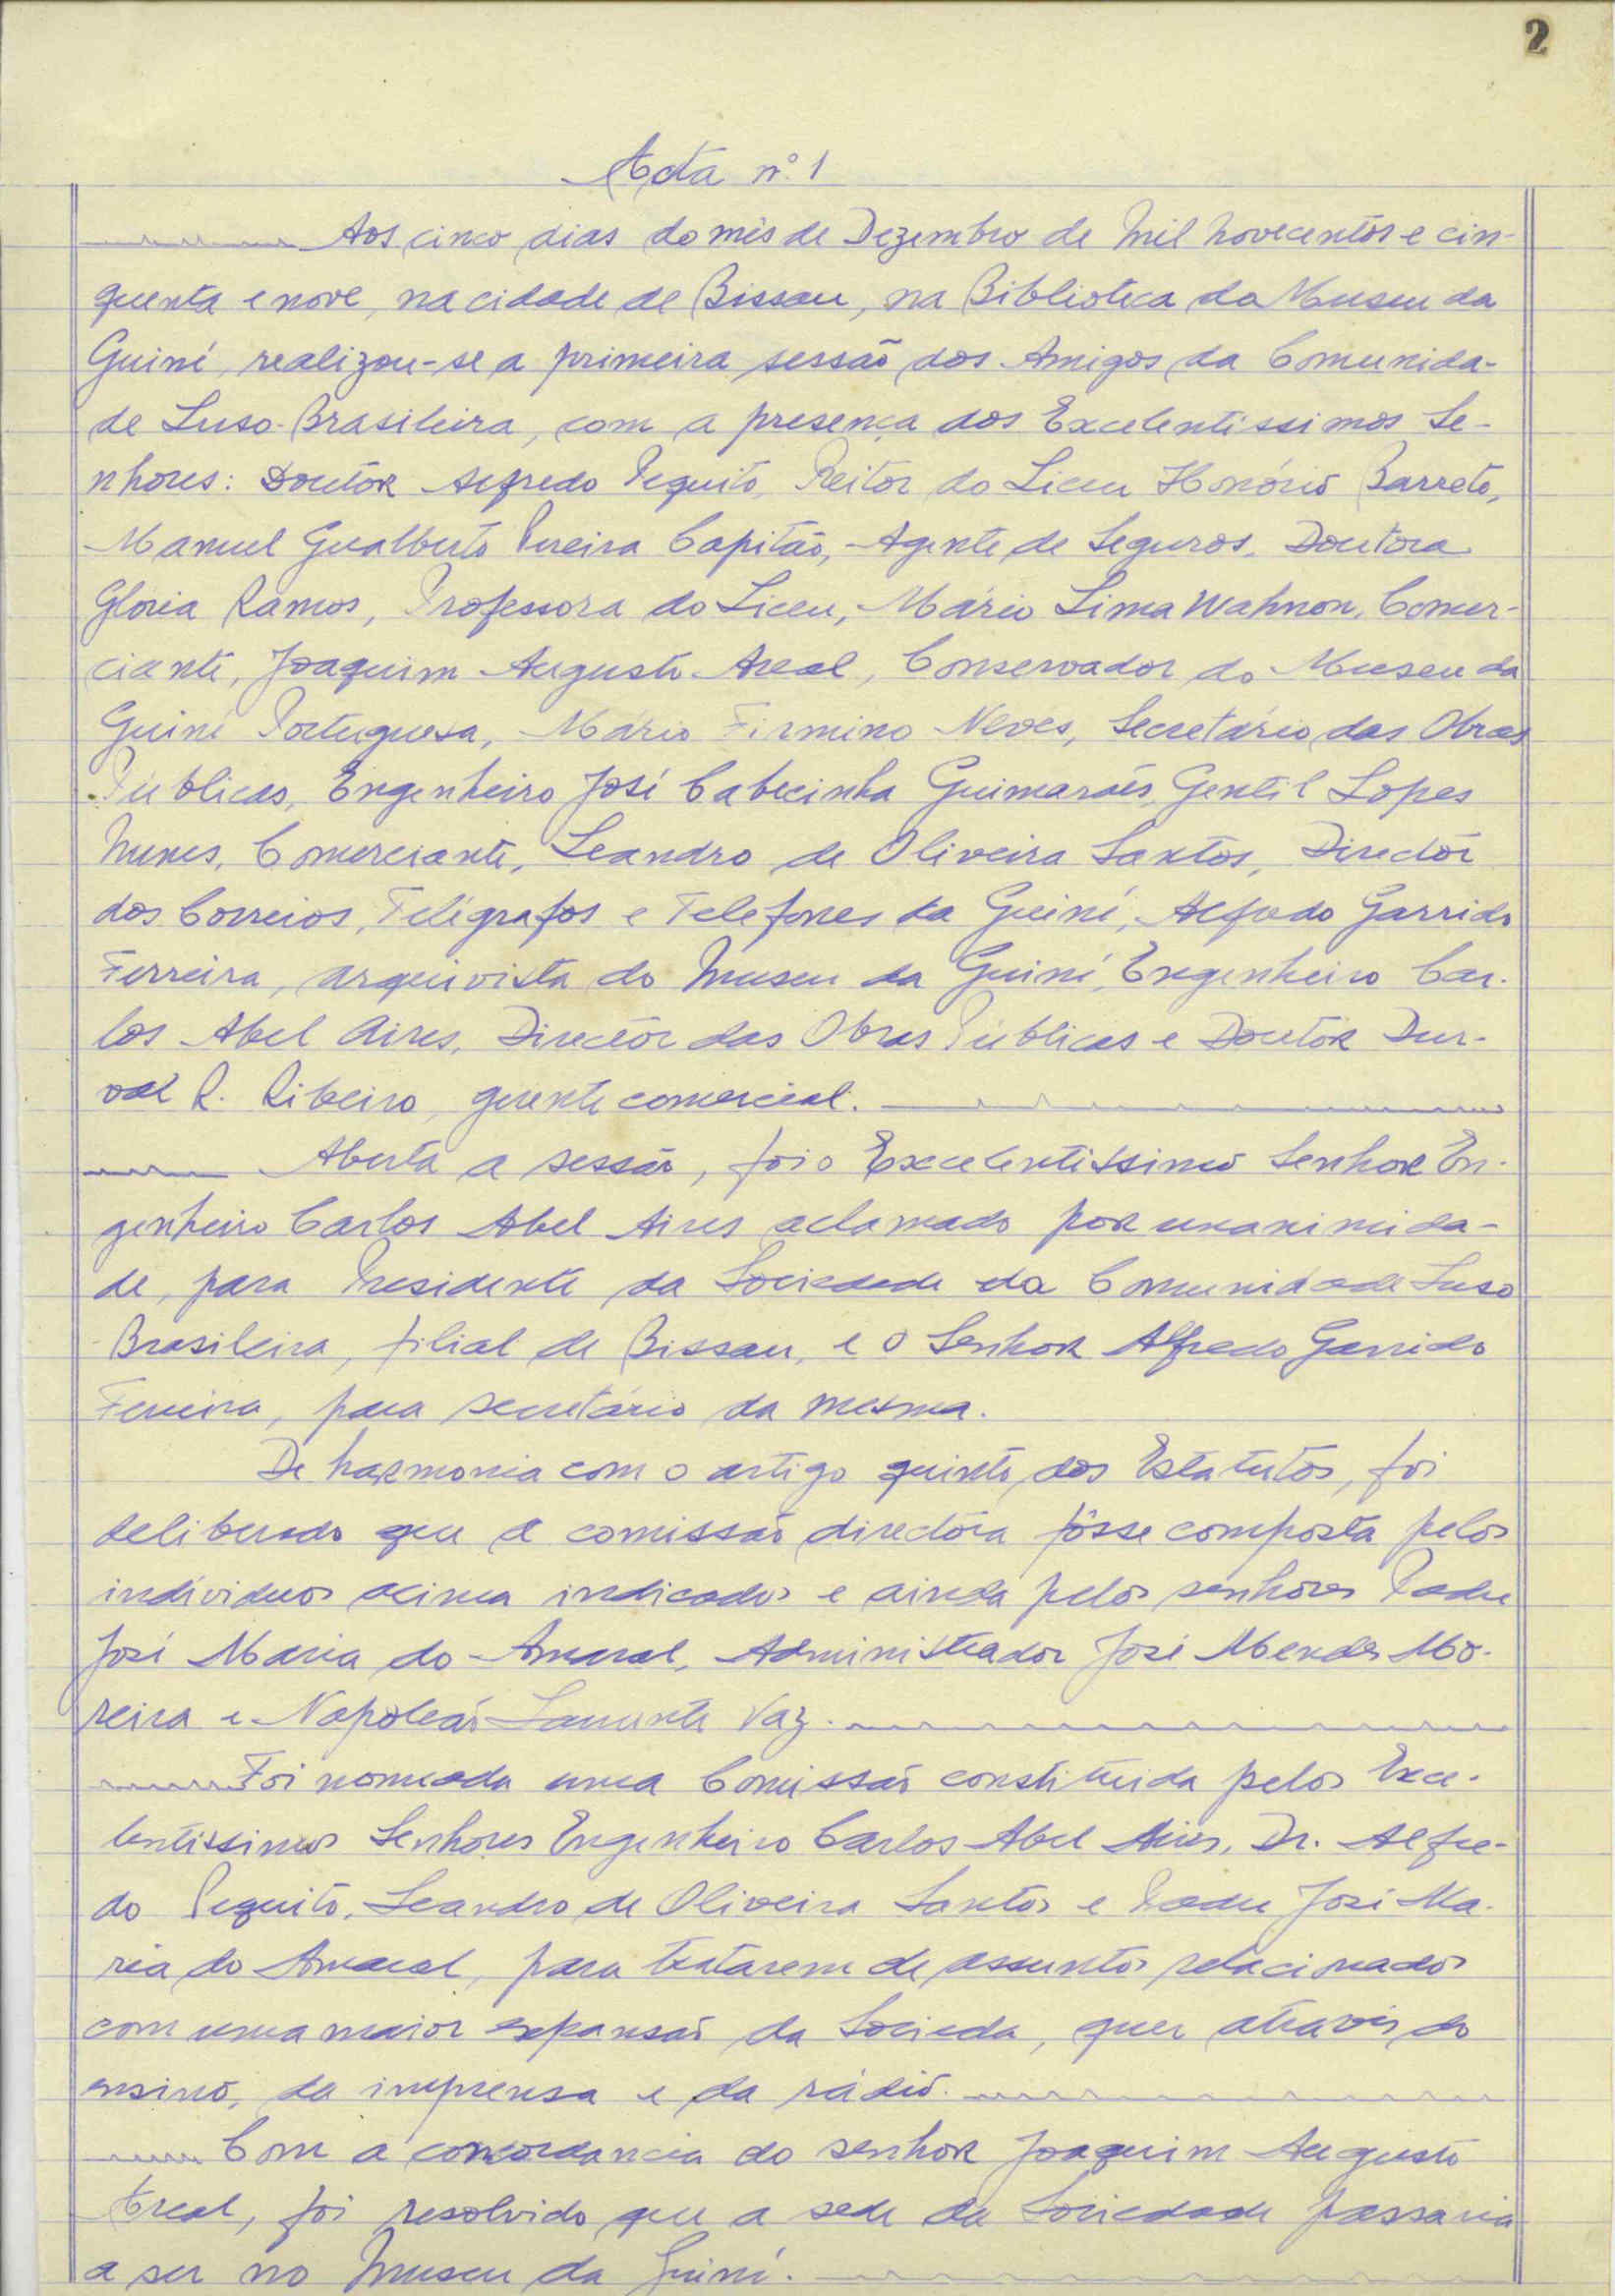 2
Acta nº 1
Aos cinco dias do mês de Dezembro de mil novecentos e cin-
quenta e nove, na cidade de Bissau, na Biblioteca do Museu da
Guiné, realizou-se a primeira sessão dos Amigos da Comunida-
de Luso-Brasileira, com a presença dos Excelentissimos Se-
nhores: Doutor Alfredo Pequito, Reitor do Liceu Honório Barreto,
Manuel Gualberto Pereira Capitão, Agente de Seguros, Doutora
Gloria Ramos, Professora do Liceu, Mário Lima Wahnon, Comer-
ciante, Joaquim Augusto Areal, Conservador do Museu da
Guiné Portuguesa, Mário Firmino Neves, Secretário das Obras
Públicas, Engenheiro José Cabecinha Guimarães, Gentil Lopes
Nunes, Comerciante, Leandro de Oliveira Santos, Director
dos Correios, Telégrafos e Telefones da Guiné, Alfredo Garrido
Ferreira, arquivista do Museu da Guiné, Engenheiro Car-
los Abel Aires, Director das Obras Públicas e Doutor Dur-
val R. Ribeiro, gerente comercial.
Aberta a sessão, foi o Excelentissimo Senhor En-
genheiro Carlos Abel Aires aclamado por unanimida-
de, para Presidente da Sociedade da Comunidade Luso
-Brasileira, filial de Bissau, e o Senhor Alfredo Garrido
Ferreira, para secretário da mesma.
De harmonia com o artigo quinto dos Estatutos, foi
deliberado que a comissão directora fôsse composta pelos
indivíduos acima indicados e ainda pelos senhores Padre
José Maria do Amaral, Administrador José Mendes Mo-
reira e Napoleão Vaz.
Foi nomeada uma Comissão constituida pelos Exce-
lentissimos Senhores Engenheiro Carlos Abel Aires, Dr. Alfre-
do Pequito, Leandro de Oliveira Santos e Padre José Ma-
ria do Amaral, para tratarem de assuntos relacionados
com uma maior expansão da Socieda, quer através do
ensino, da imprensa e da rádio.
Com a concordancia do senhor Joaquim Augusto
Areal, foi resolvido que a sede da Sociedade passaria
a ser no Museu da Guiné.